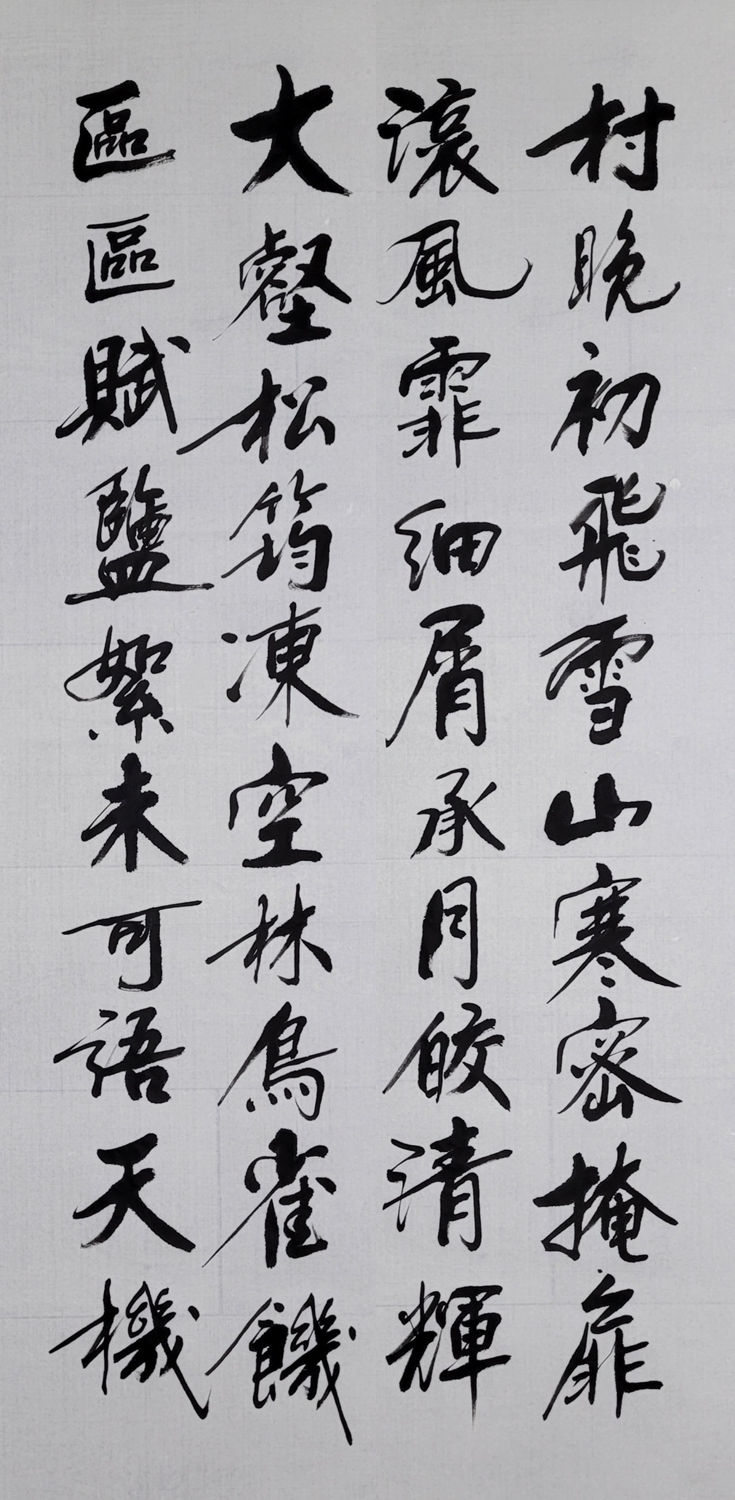 村晚初飛雪山寒密掩扉
瀼風霏細屑承月皎清輝
大壑松筠凍空林鳥雀饑
區區賦鹽絮未可語天機